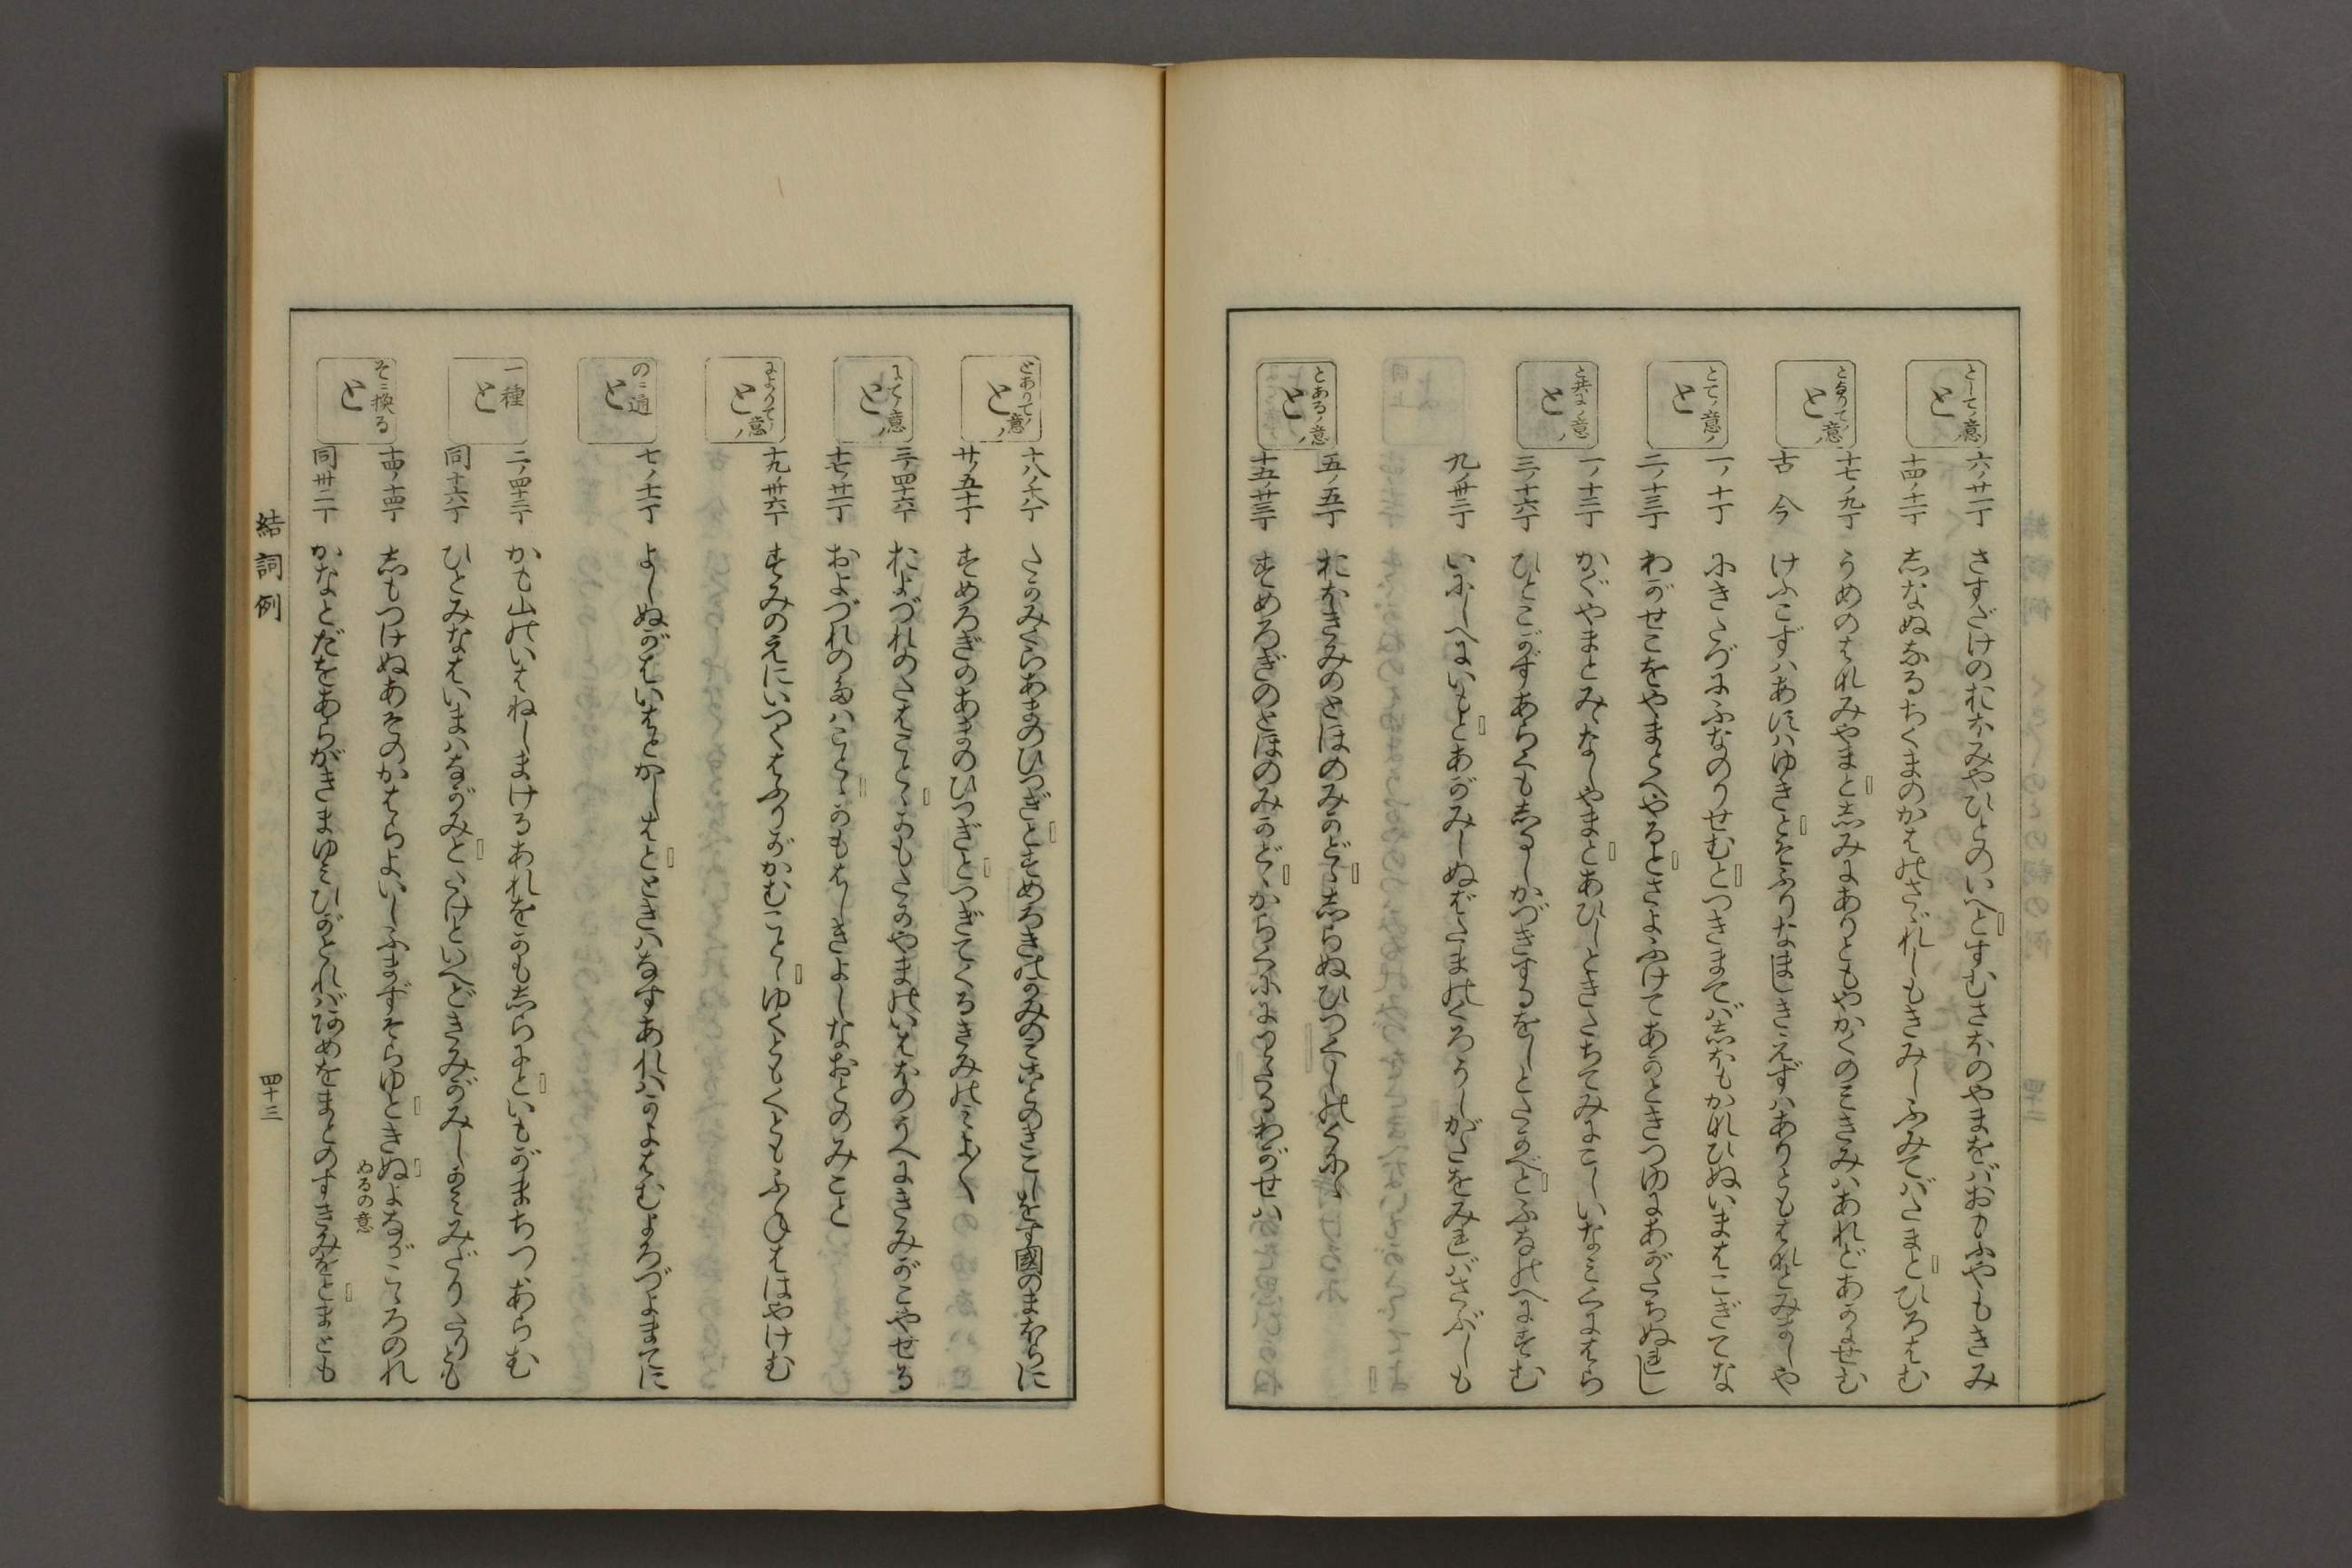 として意 と
六ノ廿一丁 さすだけのおほみやひとのいへとすむさほのやまをばおもふやもきみ
十四ノ十二丁 しなぬなるちくまのかはのさゞれしもきみしふみてばたまとひろはむ
となりて意 と
十七ノ九丁 うめのはなみやまとしみにありともやかくのみきみはあれどあかにせむ
古今 けふこずはあすはゆきとぞふりなましきえずはありともはなとみましや
とてノ意 と
一ノ十丁 にきたづにふなのりせむとつきまてばしほもかなひぬいまはこぎてな
二ノ十三丁 わがせこをやまとへやるとさよふけてあかときつゆにあがたちぬれし
と共にノ意 と
一ノ十二丁 かぐやまとみゝなしやまとあひしときたちてみにこしいなみくにはら
三ノ十六丁 ひとこがずあらくもしるしかづきするをしとたかべとふねのへにすむ
九ノ卅二丁 いにしへにいもとあがみしぬばたまのくろうしがたをみればさぶしも
とあるノ意 と
五ノ五丁 おほきみのとほのみかどゝしらぬひつくしのくにゝ
十五ノ廿三丁 すめろぎのとほのみかどゝからくににわたるわがせは
とありてノ意 と
十八ノ廿八丁 たかみくらあまのひつぎとすめろきのかみのみことのきこしをす國のまほらに
廿ノ五十丁 すめろぎのあまのひつぎとつぎてくるきみのみよ〳〵
にてノ意 と
三ノ四十六丁 およづれのたはことゝかもたかやまのいはほのうへにきみがこやせる
十七ノ廿一丁 およづれのたはことゝかもはしきよしなおとのみこと
によりてノ意 と
十九ノ卅六丁 すみのえにいつくはふりがかむことゝゆくともくともふねははやけむ
のニ通 と
七ノ十一丁 よしぬがはいはとかしはとときはなすあれはかよはむよろづよまでに
一種 と
二ノ四十三丁 かも山のいはねしまけるあれをかもしらにといもがまちつゝあらむ
同十六丁 ひとみなはいまはながみとたけといへどきみがみしかみみだりたりとも
そニ換る と
十四ノ十四丁 しもつけぬあそのかはらよいしふまずそらゆときぬよながこゝろのれ
ぬるの意
同卅二丁 かなとだをあらがきまゆみひがとればあめをまとのすきみをとまとも
結詞例
四十三